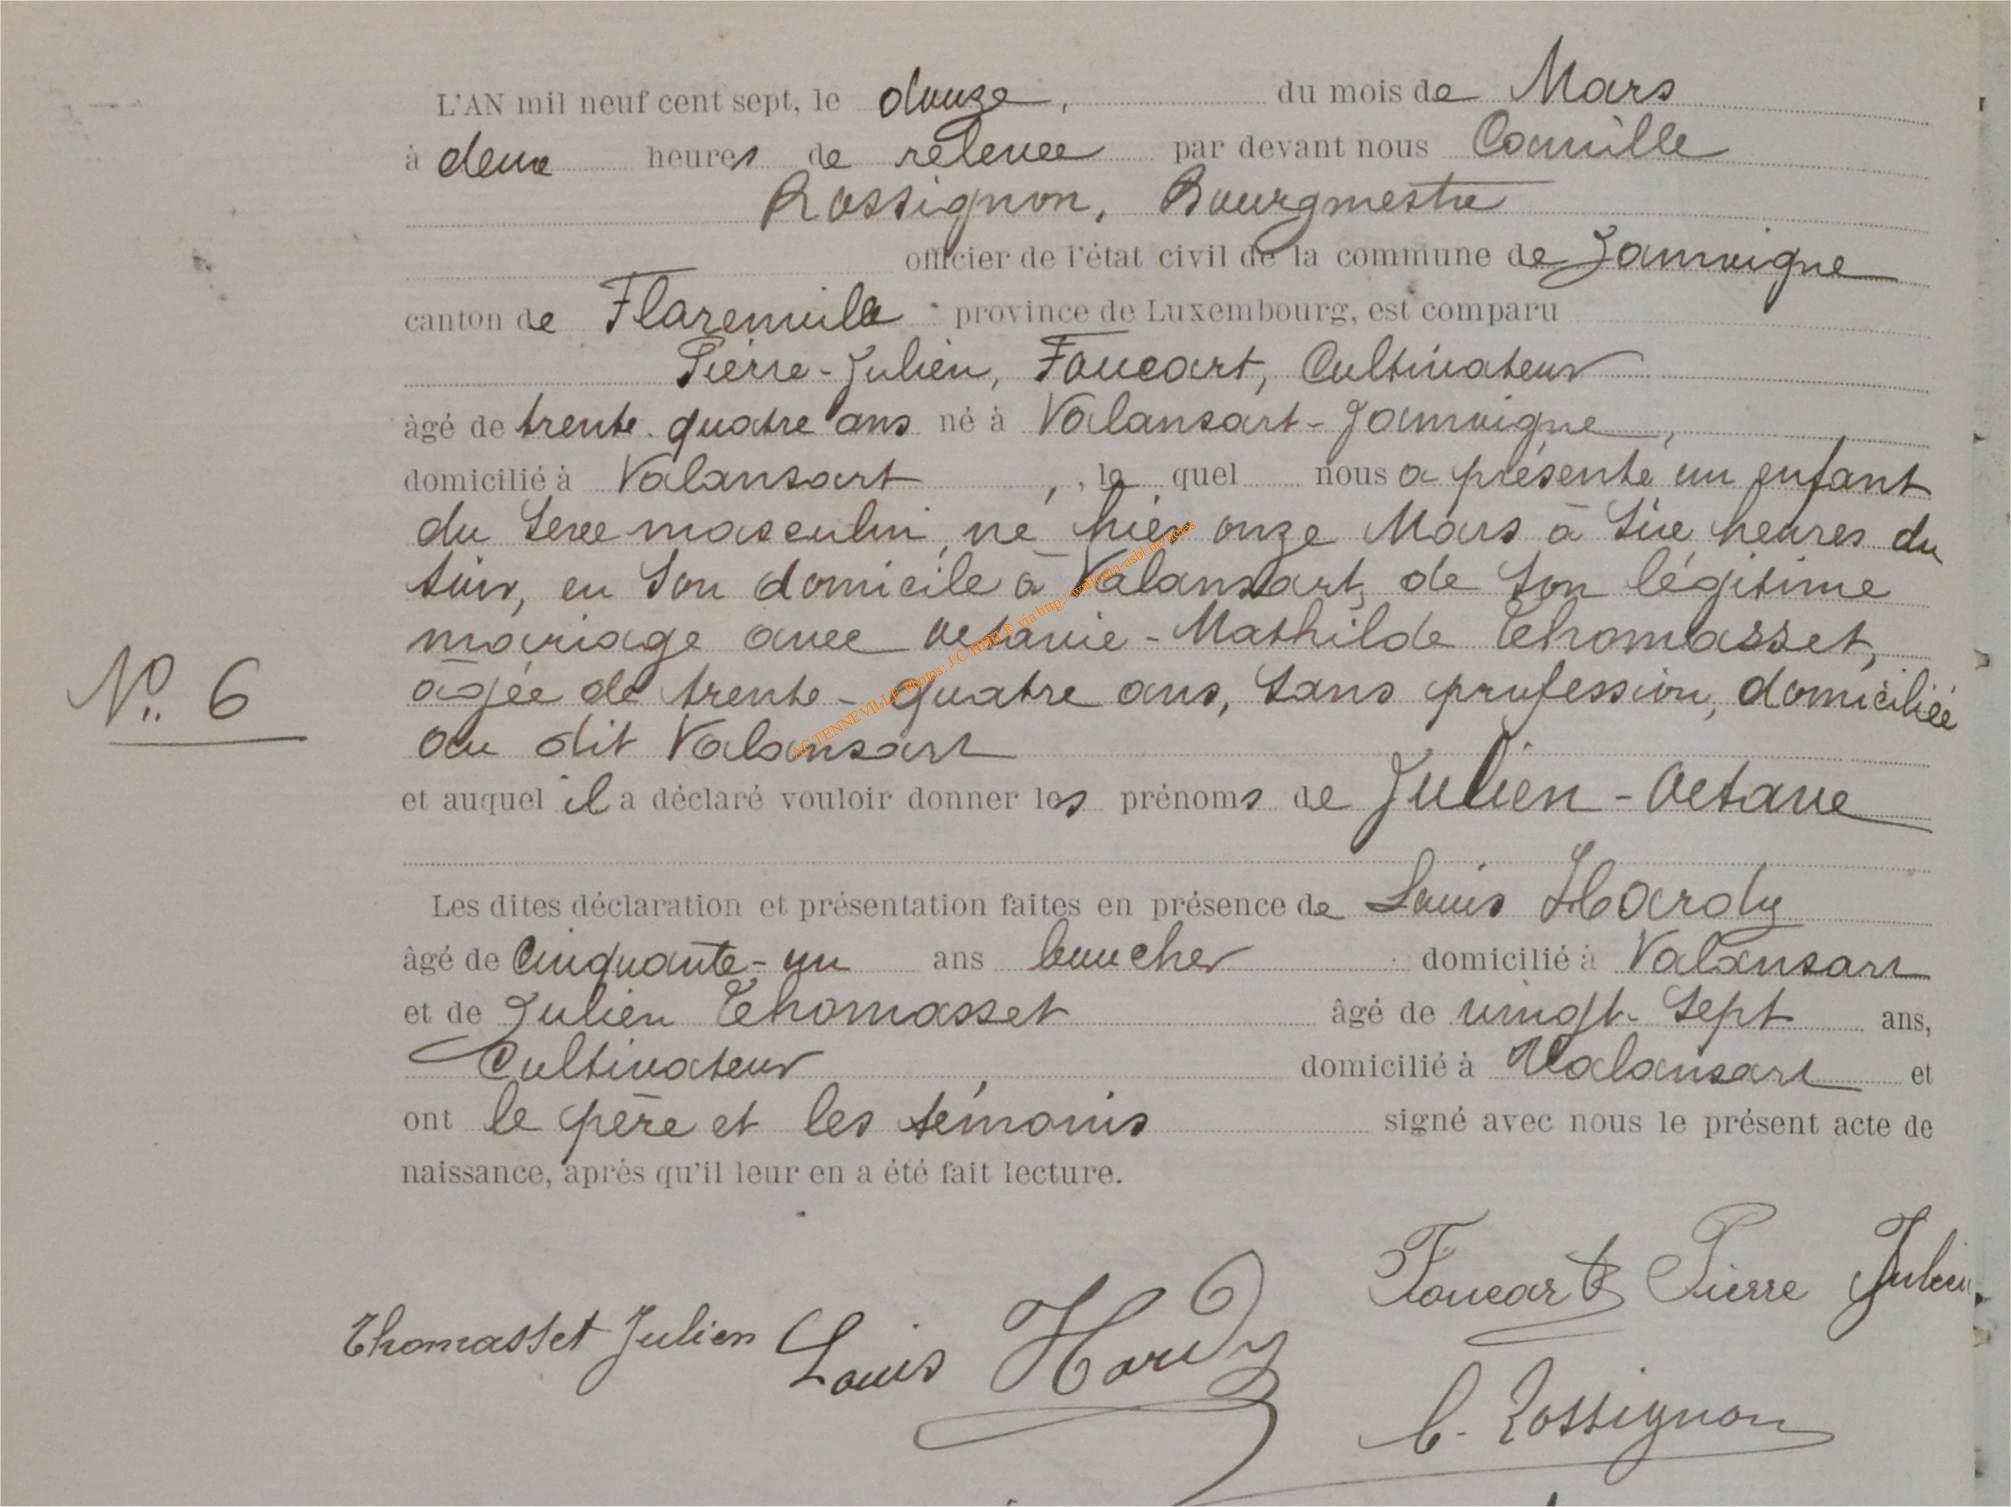 L'AN mil neuf cent sept, le douze, du mois de Mars
à deux heures de relevée par devant nous Camille
Rossignon, Bourgmestre
officier de l'état civil de la commune de Jamoigne
canton de Florenville province de Luxembourg, est comparu
Pierre-Julien, Foucart, Cultivateur
âgé de trente-quatre ans né à Valansart-Jamoigne,
domicilié à Valansart, , le quel nous a présenté un enfant
du sexe masculin, né hier onze Mars à six heures du
soir, en son domicile à Valansart, de son légitime
mariage avec Octavie-Mathilde Thomasset,
N° 6
âgée de trente-quatre ans, sans profession, domiciliée
au dit Valansart
et auquel il a déclaré vouloir donner les prénoms de Julien-Octave
Les dites déclaration et présentation faites en présence de Louis Hardy
âgé de Cinquante-un ans boucher domicilié à Valansart
et de Julien Thomasset âgé de vingt-sept ans,
Cultivateur domicilié à Valansart et
ont le père et les témoins signé avec nous le présent acte de
naissance, après qu'il leur en a été fait lecture.
Foucart Pierre Julien
Thomasset Julien Louis Hardy
C. Rossignon